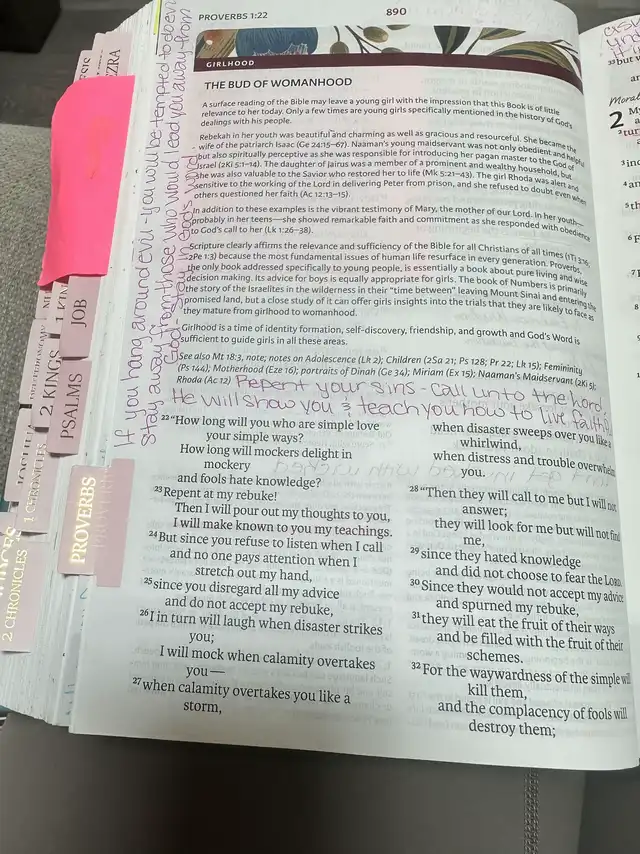 PROVERBS 1:22
890
GIRLHOOD
THE BUD OF WOMANHOOD
A surface reading of the Bible may leave a young girl with the impression that this Book is of little
relevance to her today. Only a few times are young girls specifically mentioned in the history of God's
dealings with his people.
Rebekah in her youth was beautiful and charming as well as gracious and resourceful. She became the
wife of the patriarch Isaac (Ge 24:15–67). Naaman's young maidservant was not only obedient and helpful
but also spiritually perceptive as she was responsible for introducing her pagan master to the God of
Israel (2Ki 5:1–14). The daughter of Jairus was a member of a prominent and wealthy household, but
she was also valuable to the Savior who restored her to life (Mk 5:21–43). The girl Rhoda was alert and
sensitive to the working of the Lord in delivering Peter from prison, and she refused to doubt even when
others questioned her faith (Ac 12:13–15).
In addition to these examples is the vibrant testimony of Mary, the mother of our Lord. In her youth—
probably in her teens—she showed remarkable faith and commitment as she responded with obedience
to God's call to her (Lk 1:26–38).
Scripture clearly affirms the relevance and sufficiency of the Bible for all Christians of all times (1Ti 3:16;
2Pe 1:3) because the most fundamental issues of human life resurface in every generation. Proverbs,
the only book addressed specifically to young people, is essentially a book about pure living and wise
decision making. Its advice for boys is equally appropriate for girls. The book of Numbers is primarily
the story of the Israelites in the wilderness in their "time between" leaving Mount Sinai and entering the
promised land, but a close study of it can offer girls insights into the trials that they are likely to face as
they mature from girlhood to womanhood.
Girlhood is a time of identity formation, self-discovery, friendship, and growth and God's Word is
sufficient to guide girls in all these areas.
See also Mt 18:3, note; notes on Adolescence (Lk 2); Children (2Sa 21; Ps 128; Pr 22; Lk 15); Femininity
(Ps 144); Motherhood (Eze 16); portraits of Dinah (Ge 34); Miriam (Ex 15); Naaman's Maidservant (2Ki 5);
Rhoda (Ac 12)
Repent your sins - call unto the Lord,
He will show you & teach you how to live faithful
If you hang around evil - you will be tempted to do evil
stay away from those who would lead you away from
God - stay in God's word
22 "How long will you who are simple love
your simple ways?
How long will mockers delight in
mockery
and fools hate knowledge?
23 Repent at my rebuke!
Then I will pour out my thoughts to you,
I will make known to you my teachings.
24 But since you refuse to listen when I call
and no one pays attention when I
stretch out my hand,
25 since you disregard all my advice
and do not accept my rebuke,
26 I in turn will laugh when disaster strikes
you;
I will mock when calamity overtakes
you—
27 when calamity overtakes you like a
storm,
when disaster sweeps over you like a
whirlwind,
when distress and trouble overwhelm
you.
28 "Then they will call to me but I will not
answer;
they will look for me but will not find
me,
29 since they hated knowledge
and did not choose to fear the LORD.
30 Since they would not accept my advice
and spurned my rebuke,
31 they will eat the fruit of their ways
and be filled with the fruit of their
schemes.
32 For the waywardness of the simple will
kill them,
and the complacency of fools will
destroy them;
EZRA
JOB
1 KIN
2 KINGS
PSALMS
1 CHRONICLES
PROVERBS
2 CHRONICLES
Moral
2